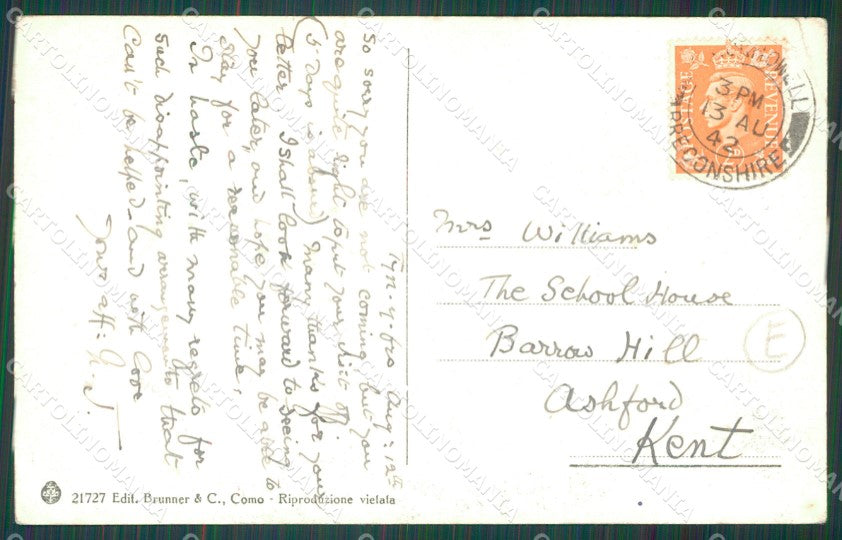 Tyn-y-ffos Aug: 12th
So sorry you are not coming but you
are quite right to put your visit off.
(5 Days is absurd) Many thanks for your
letter. I shall look forward to seeing
you later, and hope you may be able to
stay for a reasonable time.
In haste, with many regrets for
such disappointing arrangements that
can't be helped - and with love
Your aff: 
Mrs Williams
The School House
Barrow Hill
Ashford
Kent
E
POSTAGE REVENUE
3 PM
13 AU
42
BRECONSHIRE
21727 Edit. Brunner & C., Como - Riproduzione vietata
CARTOLINOMANIA